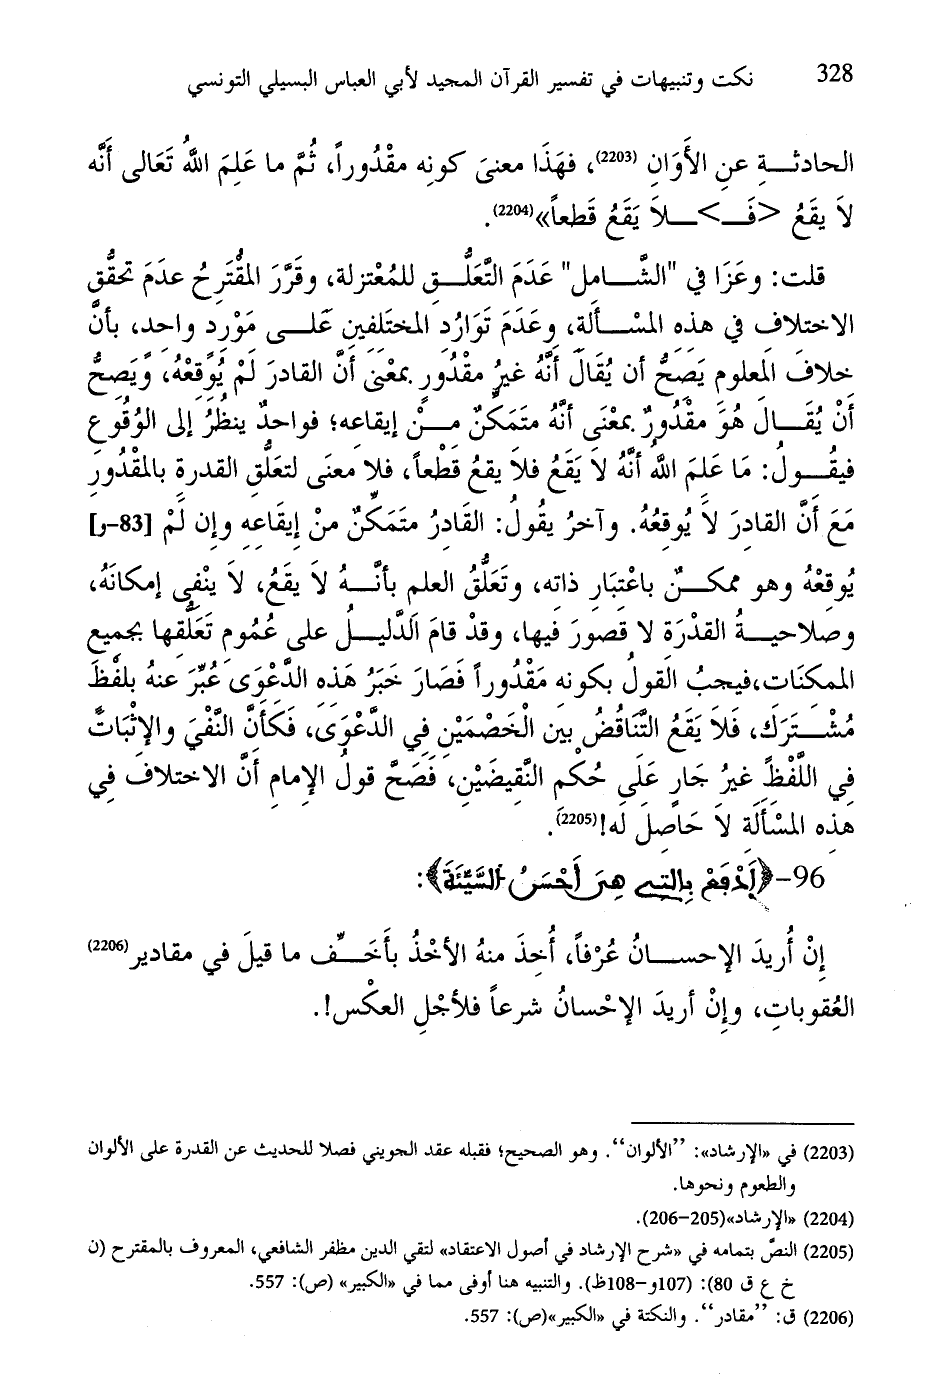 328
نكت وتنبيهات في تفسير القرآن المجيد لأبي العباس البسيلي التونسي
الحادثـــة عن الأَوَان (2203)، فهَذَا معنىَ كونه مقْدُوراً، ثُمَّ ما عَلِمَ اللهُ تَعَالى أنَّه
لاَ يقَعُ <فَــ>ــلاَ يَقَعُ قَطعاً»(2204).
قلت: وعَزَا في "الشَّـــامل" عَدَمَ التَّعَلُّـــق للمُعْتزلة، وقَرَّرَ المُقْتَرحُ عدَمَ تحقّق
الاختلاف في هذه المسْـــألَة، وعَدَمَ تَوَارُد المختَلفين عَلـــى مَوْرد واحد، بأنَّ
خلافَ المعلوم يَصحُّ أن يُقَالَ أنَّهُ غيرُ مقدُور بمعْنَى أنَّ القادرَ لَمْ يُوقعْهُ، وَيَصحُّ
أنْ يُقَـــالَ هُوَ مقْدُورٌ بمعْنَى أنَّهُ متَمَكنٌ مـــنْ إيقاعه؛ فواحدٌ ينظُرُ إلى الوُقُوع
فيقـــولُ: مَا عَلمَ اللهُ أنَّهُ لاَ يَقَعُ فلا يقعُ قَطْعاً، فلا معنَى لتعَلُّق القدرة بالمَقْدُور
مَعَ أنَّ القادرَ لاَ يُوقعُهُ. وآخرُ يقُولُ: القَادرُ متَمَكنٌ منْ إيقَاعه وإن لَمْ [83-و]
يُوقعْهُ وهو ممكـــنٌ باعْتبَار ذاته، وتَعَلُّقُ العلم بأنَّـــهُ لاَ يقَعُ، لاَ ينْفي إمكَانَهُ،
وصلاحيـــةُ القدْرَة لا قصورَ فيها، وقدْ قامَ الدَّليـــلُ على عُمُوم تَعَلُّقها بجميع
الممكنَات، فيجبُ القولُ بكونه مَقْدُوراً فَصَارَ خَبَرُ هَذه الدَّعْوَى عُبِّرَ عنهُ بلفْظ
مُشْـــتَرَك، فَلاَ يَقَعُ التَّنَاقُضُ بين الْخَصْمَيْن في الدَّعْوَى، فَكَأَنَّ النَّفْيَ والإثْبَاتَ
في اللَّفْظ غيرُ جَار عَلَى حُكم النَّقيضَيْن، فَصَحَّ قولُ الإمام أنَّ الاختلافَ في
هذه المسْألَة لاَ حَاصلَ له!(2205).
96-﴿اَدْفَعْ بِالتِے هِيَ أَحْسَنُ اَلسَّيِّئَةَ﴾:
إنْ أُريدَ الإحســـانُ عُرْفاً، أُخذَ منهُ الأخْذُ بأخَـــفِّ ما قيلَ في مقادير(2206)
العُقوبات، وإنْ أريدَ الإحْسانُ شرعاً فلأجْل العكْس!.
(2203) في «الإرشاد»: ’’الألوان‘‘. وهو الصحيح؛ فقبله عقد الجويني فصلا للحديث عن القدرة على الألوان
والطعوم ونحوها.
(2204) «الإرشاد»(205-206).
(2205) النصّ بتمامه في «شرح الإرشاد في أصول الاعتقاد» لتقي الدين مظفر الشافعي، المعروف بالمقترح (ن
خ ع ق 80): (107و-108ظ). والتنبيه هنا أوفى مما في «الكبير» (ص): 557.
(2206) ق: ’’مقادر‘‘. والنكتة في «الكبير»(ص): 557.